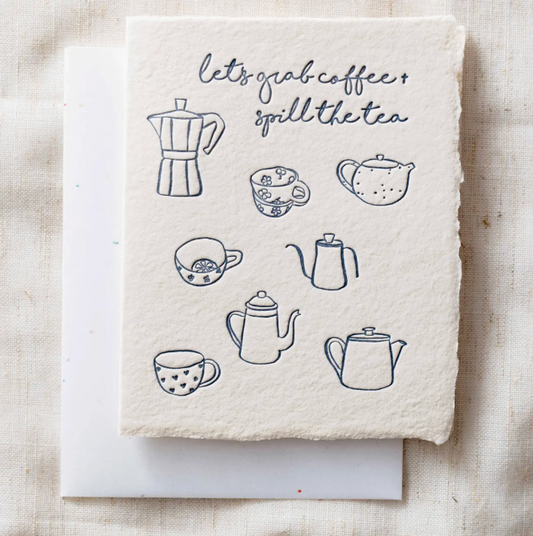 let's grab coffee +
spill the tea